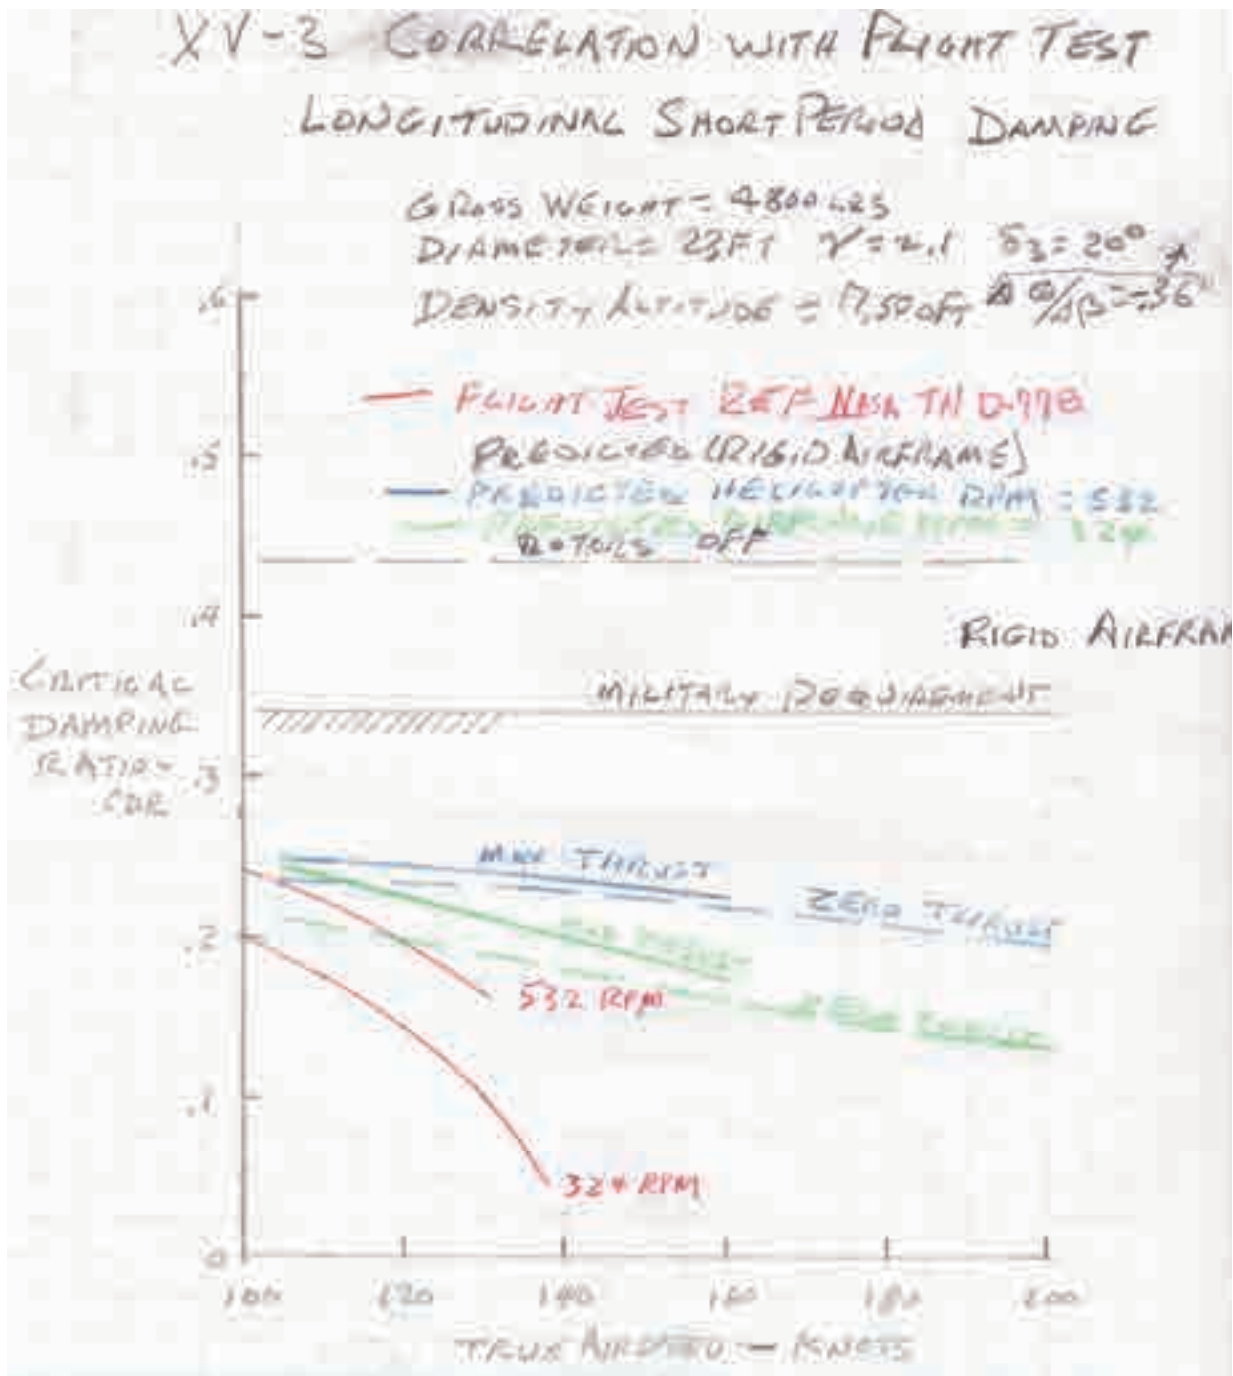 XV-3 CORRELATION WITH FLIGHT TEST
LONGITUDINAL SHORT PERIOD DAMPING
GROSS WEIGHT = 4800 LBS
DIAMETER = 23 FT γ = 2.1 δ3 = 20°
DENSITY ALTITUDE = FT Δθ/Δβ = .36
FLIGHT TEST REF NASA TN D-778
PREDICTED (RIGID AIRFRAME)
PREDICTED HELICOPTER RPM = 532
PREDICTED RPM = 324
ROTORS OFF
.6
.5
.4
RIGID AIRFRAM
MILITARY REQUIREMENT
CRITICAL
DAMPING
RATIO -
CDR
.3
MAX THRUST
ZERO THRUST
.2
MAX THRUST
532 RPM
ZERO THRUST
.1
324 RPM
0
100 120 140 160 180 200
TRUE AIRSPEED - KNOTS